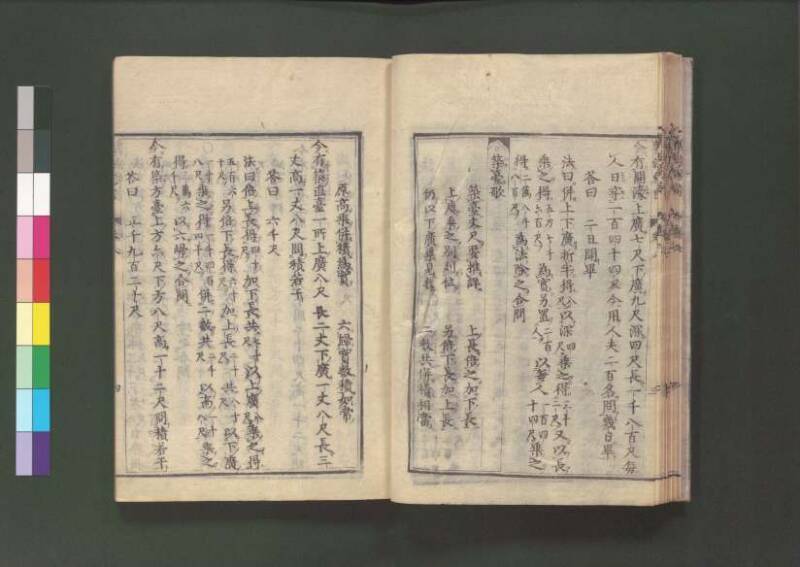 今有開濠上廣七尺下廣九尺深四尺長一千八百尺每
人日率一百四十四尺今用人夫二百名問幾日畢
答曰 二日開畢
法曰併上下廣折半得八尺以深四尺乘之得三十二尺又以長
乘之得五万七千六百尺為實另置二百人以每人一百四十四尺乘之
得二萬八千八百尺為法除之合問
築臺歌
築臺丈尺要推詳 上長倍之加下長
上廣乘之別列位 另倍下長加上長
仍以下廣乘見數 二數共併積相當
原高乘併積為實 六歸實數積如常
今有築直臺一所上廣八尺長二丈下廣一丈八尺長三
丈高一丈八尺問積若干
答曰 六千尺
法曰倍上長得四十尺加下長共七十尺以上廣八尺乘之得
五百六十尺另倍下長得六十尺加上長二十尺共八十尺以下廣
八尺乘之得一千四百四十尺併二數共二千尺以高一十八尺乘之
得三萬六千尺以六歸之合問
今有築方臺上方六尺下方八尺高一十二尺問積若干
答曰